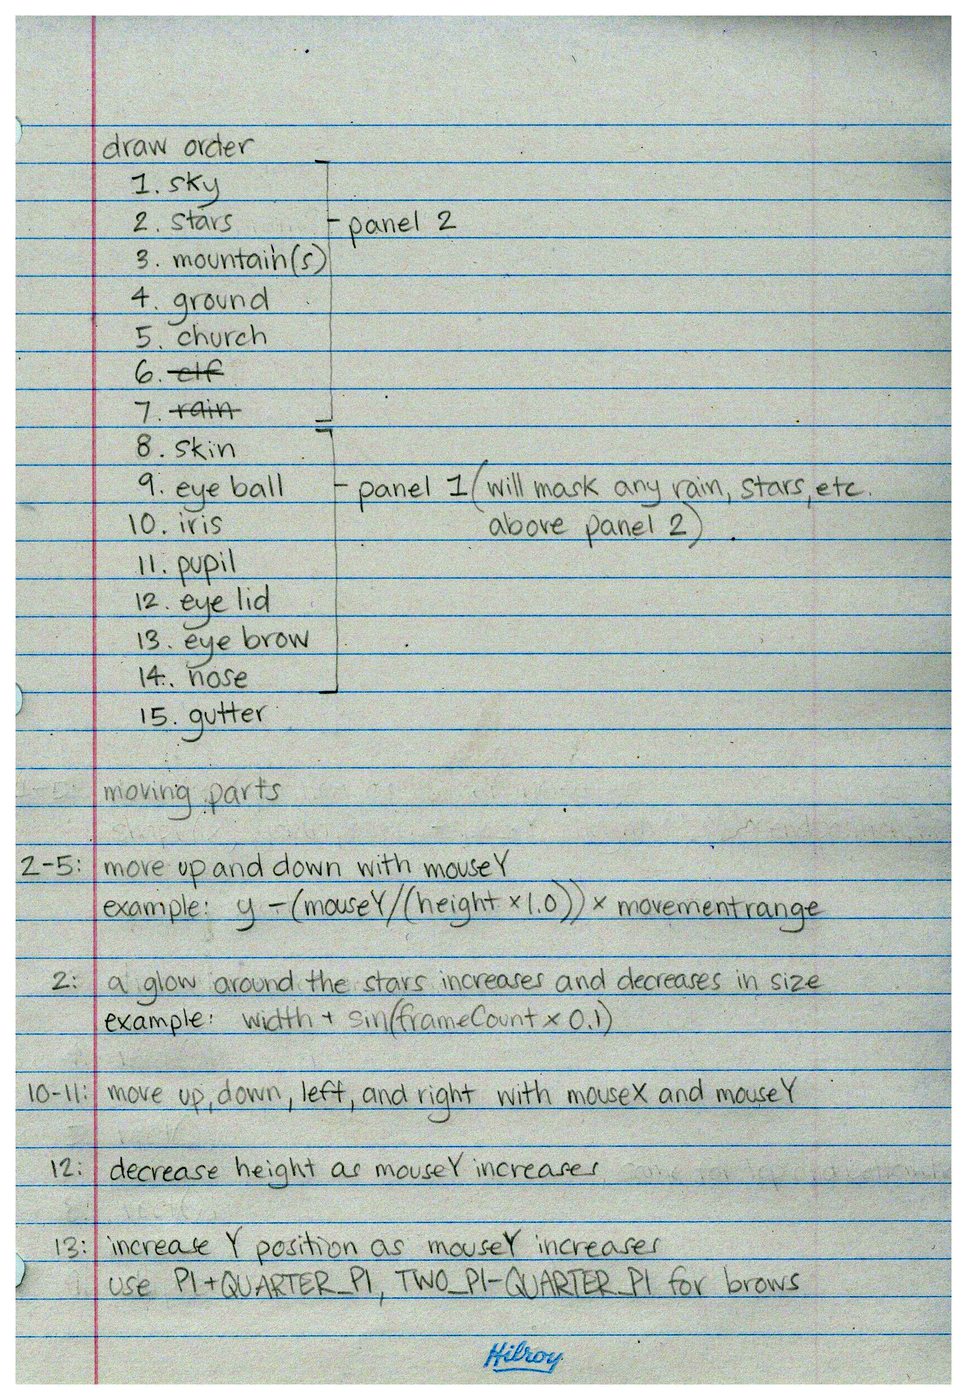 draw order
1. sky
2. stars
panel 2
3. mountain(s)
4. ground
5. church
6. elf
7. rain
8. skin
9. eye ball
panel 1 (will mask any rain, stars, etc.
above panel 2)
10. iris
11. pupil
12. eye lid
13. eye brow
14. nose
15. gutter
moving parts
2-5: move up and down with mouseY
example: y - (mouseY/(height × 1.0)) × movementrange
2: a glow around the stars increases and decreases in size
example: width + sin(frameCount × 0.1)
10-11: move up, down, left, and right with mouseX and mouseY
12: decrease height as mouseY increases
13: increase Y position as mouseY increases
use PI+QUARTER_PI, TWO_PI-QUARTER_PI for brows
Hilroy